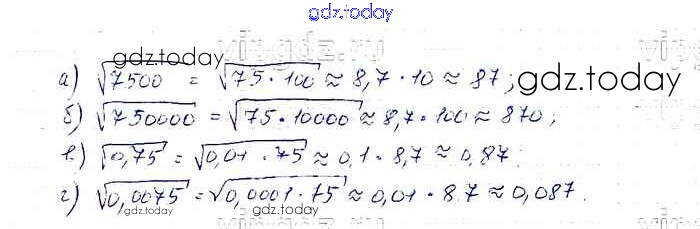 gdz.today
а) √7500 = √75·100 ≈ 8,7·10 ≈ 87;
gdz.today
gdz.today
б) √750000 = √75·10000 ≈ 8,7·100 ≈ 870;
в.) √0,75 = √0,01·75 ≈ 0,1·8,7 ≈ 0,87.
г) √0,0075 = √0,0001·75 ≈ 0,01·8.7 ≈ 0,087.
gdz.today
gdz.today